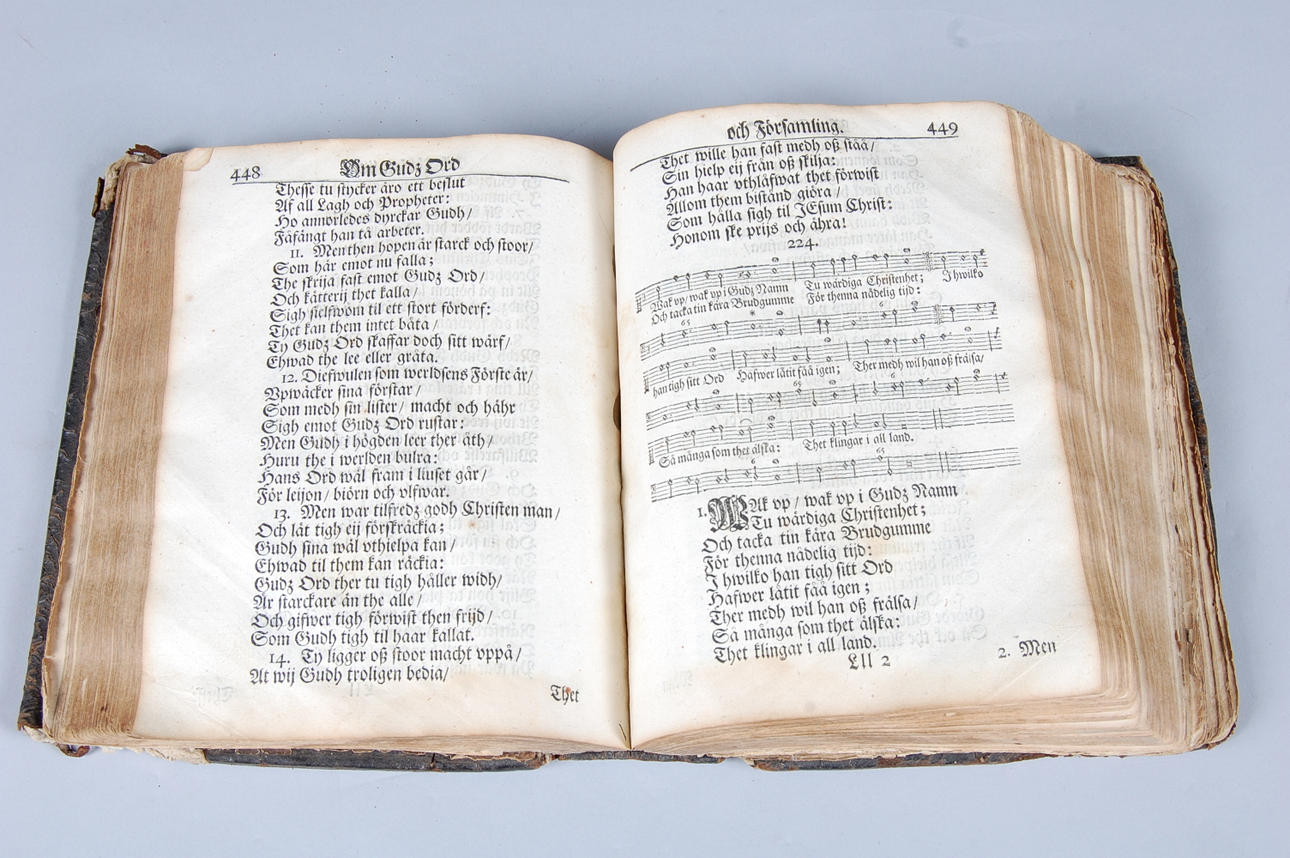 448 Om Gudz Ord
Thesse tu stycker äro ett beslut
Af all Lagh och Propheter:
Ho annorledes dyrckar Gudh/
Fåfängt han tå arbeter.
11. Men then hopen är starck och stoor/
Som här emot nu falla;
The skrija fast emot Gudz Ord/
Och kätterij thet kalla/
Sigh sielfwom til ett stort förderf:
Thet kan them intet båta/
Ty Gudz Ord skaffar doch sitt wärf/
Ehwad the lee eller gråta.
12. Diefwulen som werldsens Förste är/
Vpwäcker sina förstar/
Som medh sin lister/ macht och häär
Sigh emot Gudz Ord rustar:
Men Gudh i högden leer ther åth/
Huru the i werlden bulra:
Hans Ord wäl fram i liuset går/
För leijon/ biörn och vlfwar.
13. Men war tilfredz godh Christen man/
Och låt tigh eij förskräckia;
Gudh sina wäl vthielpa kan/
Ehwad til them kan räckia:
Gudz Ord ther tu tigh håller widh/
Är starckare än the alle/
Och gifwer tigh förwist then frijd/
Som Gudh tigh til haar kallat.
14. Ty ligger oß stoor macht vppå/
At wij Gudh troligen bedia/
Thet
och Församling. 449
Thet wille han fast medh oß ståå/
Sin hielp eij från oß skilja:
Han haar vthläfwat thet förwist
Allom them bistånd giöra/
Som hålla sigh til JEsum Christ:
Honom ske prijs och ähra!
224.
Wak vp/ wak vp i Gudz Namn Tu wärdiga Christenhet; J hwilko
Och tacka tin kära Brudgumme För thenna nådelig tijd:
han tigh sitt Ord Hafwer låtit fåå igen; Ther medh wil han oß frälsa/
Så många som thet älska: Thet klingar i all land.
1. WAk vp/ wak vp i Gudz Namn
Tu wärdiga Christenhet;
Och tacka tin kära Brudgumme
För thenna nådelig tijd:
J hwilko han tigh sitt Ord
Hafwer låtit fåå igen;
Ther medh wil han oß frälsa/
Så många som thet älska:
Thet klingar i all land.
Lll 2 2. Men